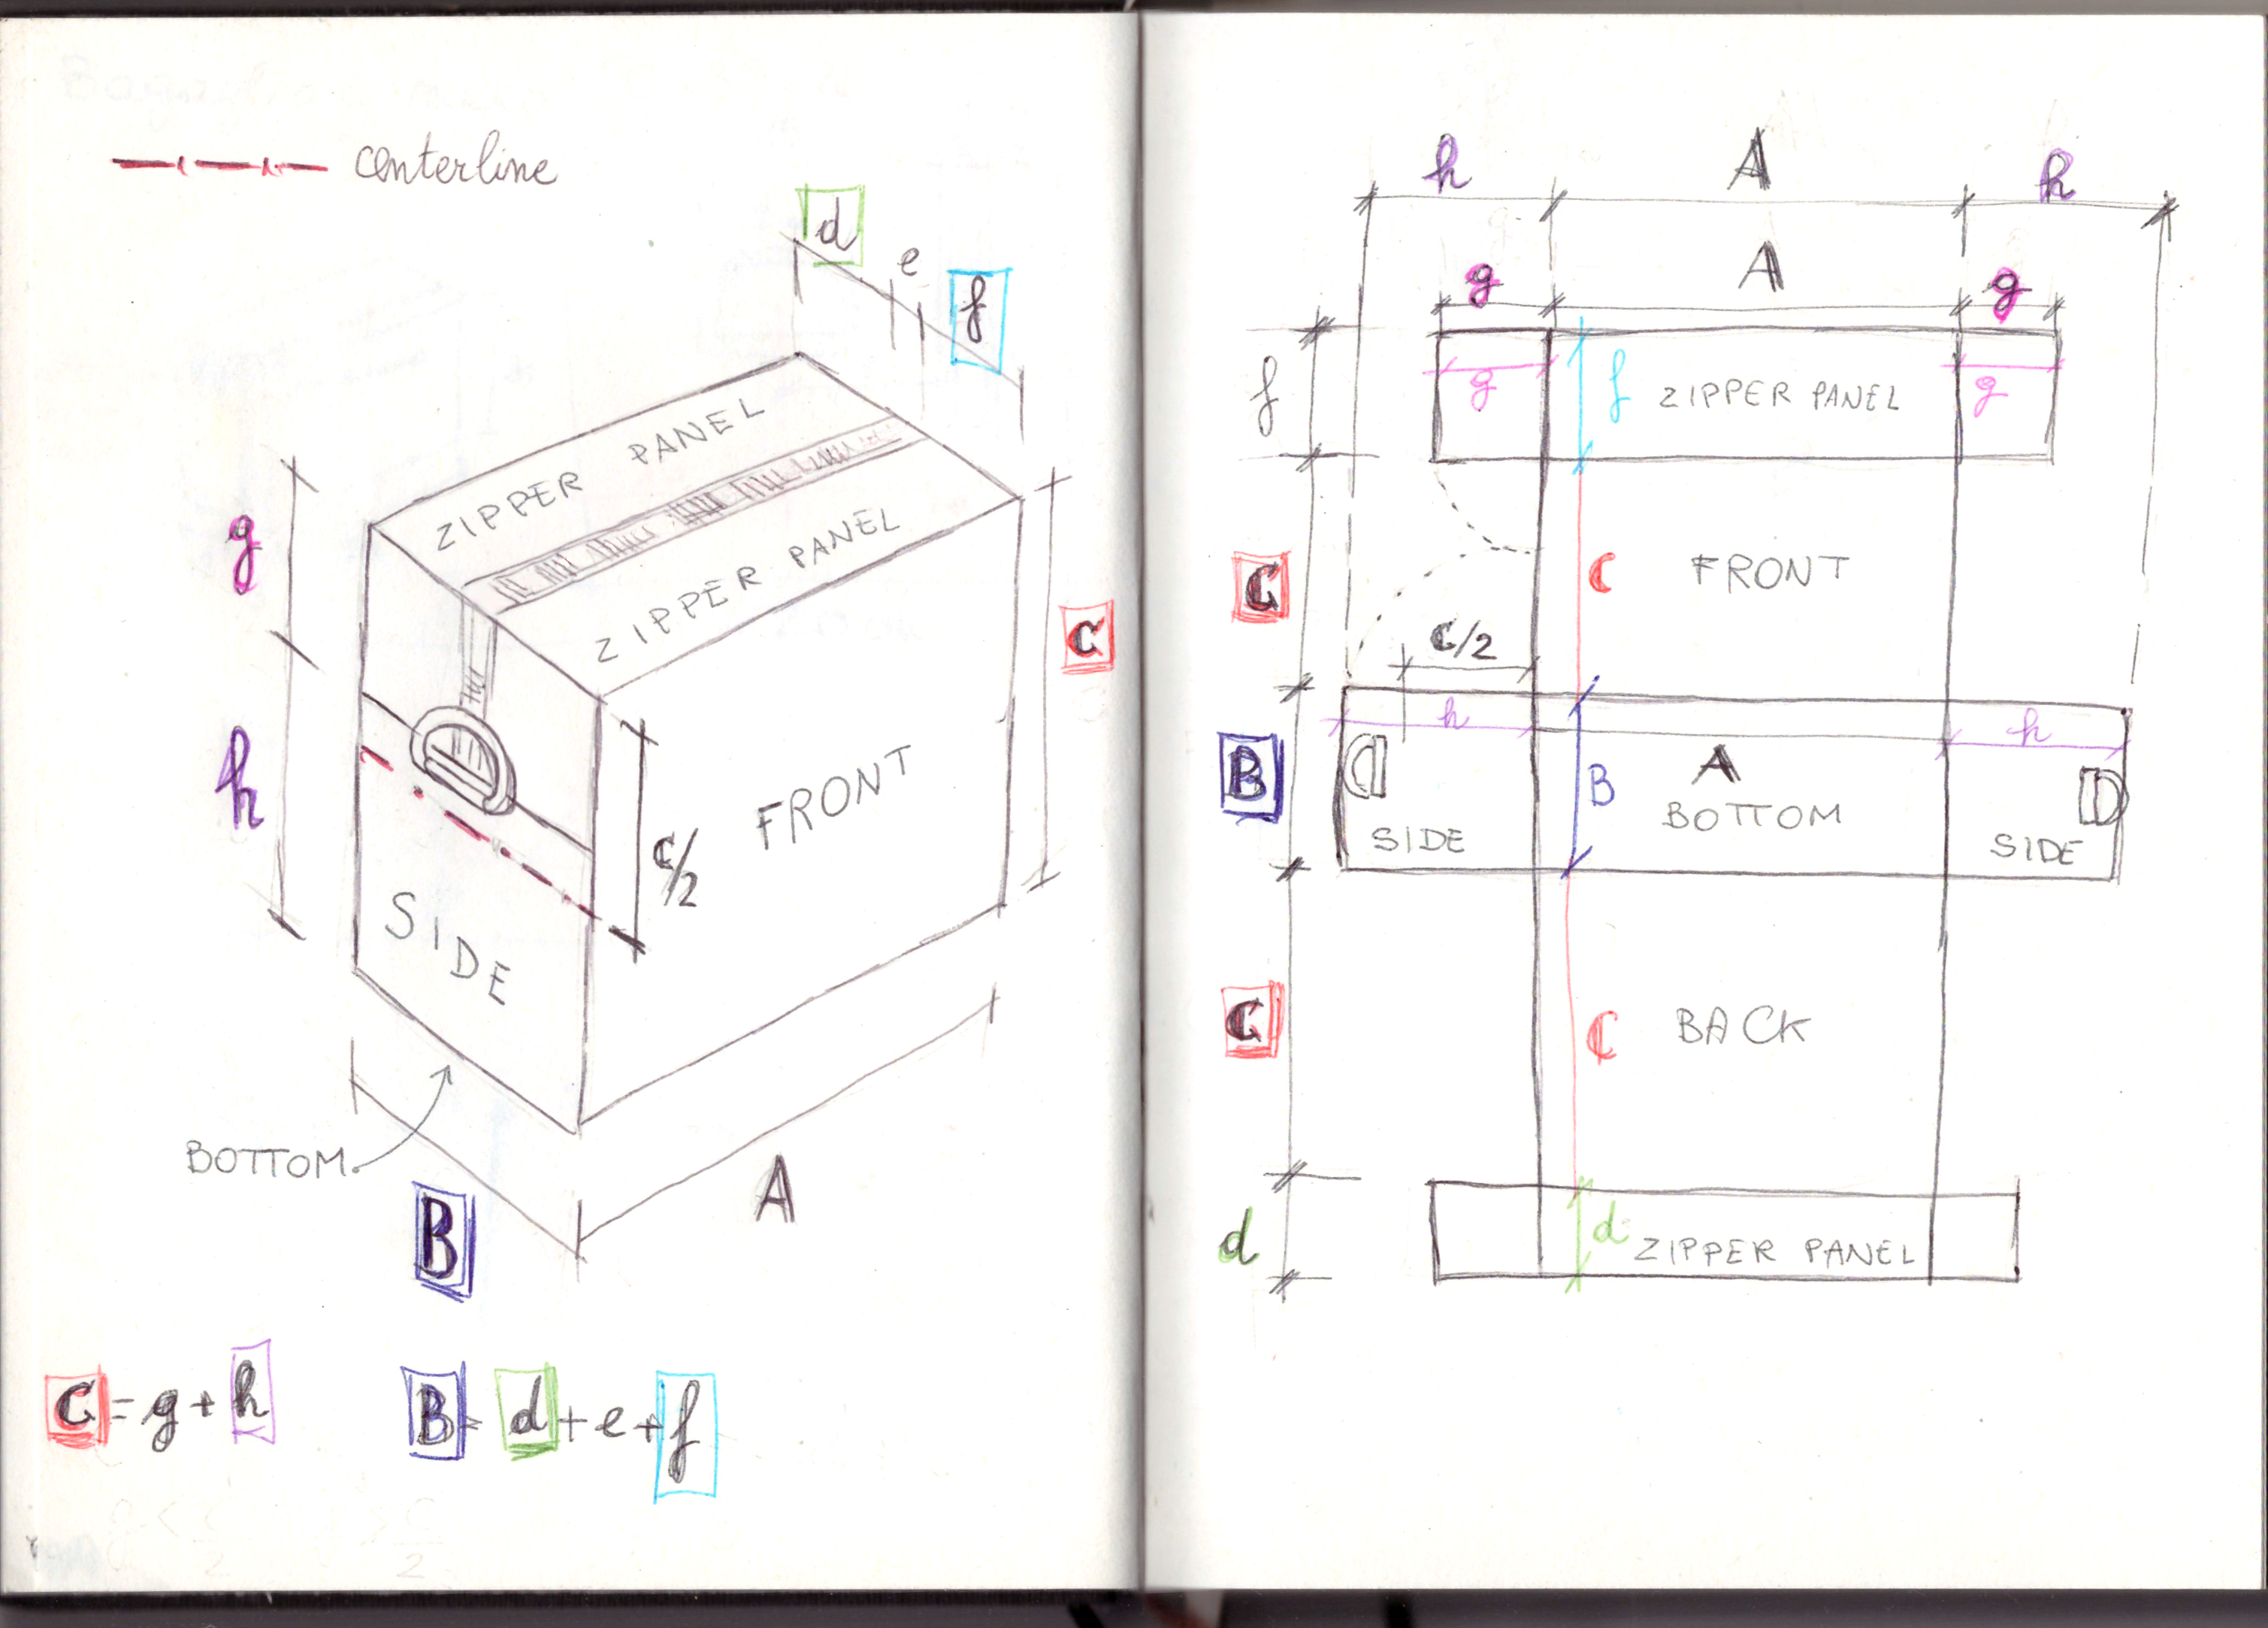 centerline
d
e
f
ZIPPER PANEL
ZIPPER PANEL
g
h
C
C/2
FRONT
SIDE
BOTTOM
B
A
C = g + h
B = d + e + f
h
A
h
g
A
g
f
g
f
ZIPPER PANEL
g
C
C
FRONT
C/2
h
h
B
A
B
BOTTOM
SIDE
SIDE
C
C
BACK
d
d
ZIPPER PANEL